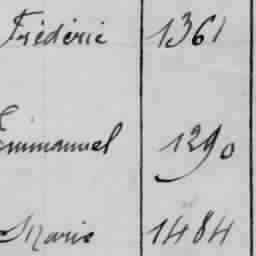 Frédéric 1361
Emmanuel 1290
Marie 1484